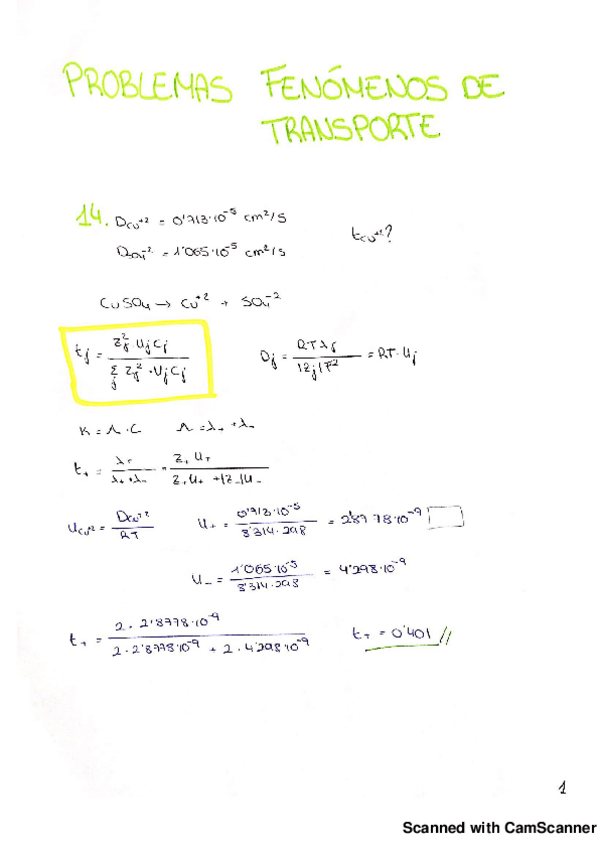 PROBLEMAS FENÓMENOS DE
TRANSPORTE
14. D_Cu⁺² = 0'713·10⁻⁵ cm²/s
t_Cu⁺²?
D_SO₄⁻² = 1'065·10⁻⁵ cm²/s
CuSO₄ → Cu⁺² + SO₄⁻²
t_j = z_j² U_j C_j / Σ_j z_j² · U_j C_j
D_j = RTλ_j / |z_j|F² = RT · U_j
K = Λ · C Λ = λ₊ + λ₋
t₊ = λ₊ / (λ₊ + λ₋) = z₊ U₊ / (z₊ U₊ + |z₋|U₋)
U_Cu⁺² = D_Cu⁺² / RT
U₊ = 0'713·10⁻⁵ / 8'314·298 = 2'8778·10⁻⁹
U₋ = 1'065·10⁻⁵ / 8'314·298 = 4'298·10⁻⁹
t₊ = 2·2'8778·10⁻⁹ / (2·2'8778·10⁻⁹ + 2·4'298·10⁻⁹)
t₊ = 0'401 //
1
Scanned with CamScanner